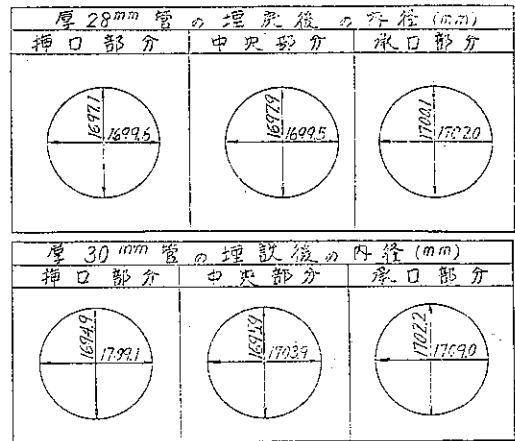 厚28mm管の埋戻後の内径(mm)
挿口部分 中央部分 承口部分
1697.1 1699.5 1697.9 1699.5 1700.1 1702.0
厚30mm管の埋設後の内径(mm)
挿口部分 中央部分 承口部分
1694.9 1709.1 1703.9 1702.2 1709.0